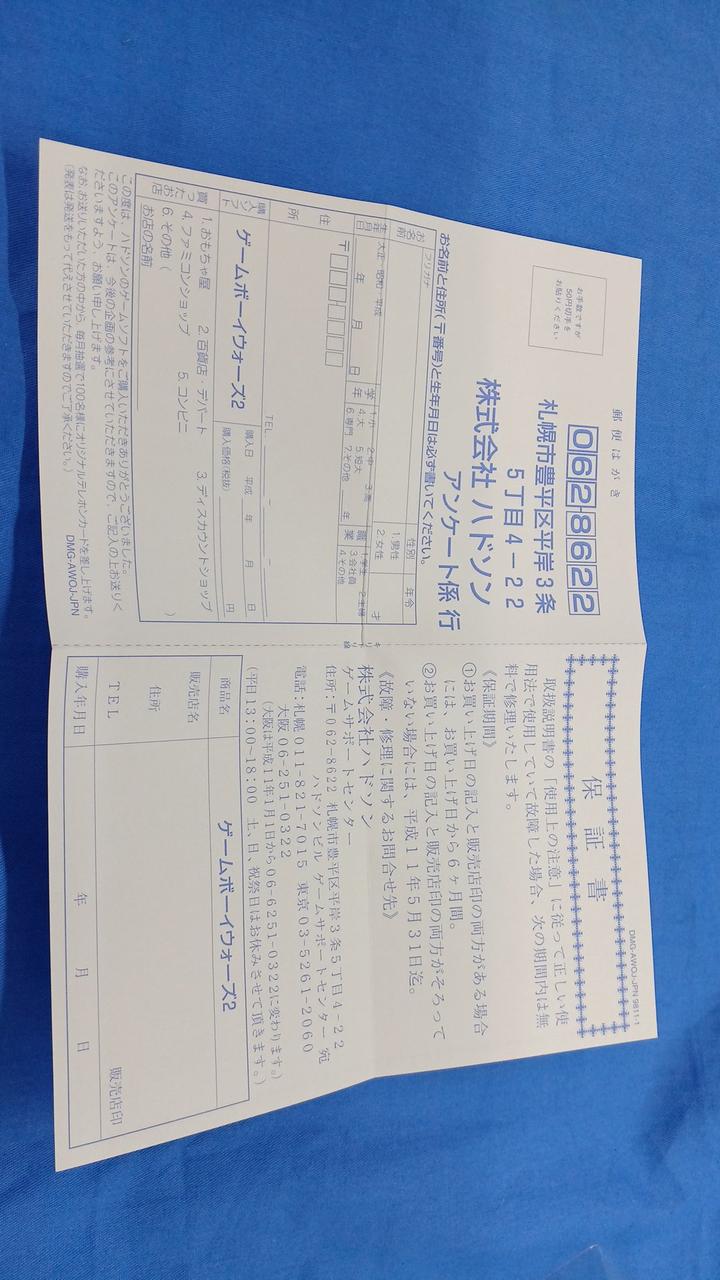 郵便はがき
062-8622
お手数ですが
50円切手を
お貼りください
札幌市豊平区平岸3条
5丁目4-22
株式会社 ハドソン
アンケート係 行
お名前と住所(〒番号)と生年月日は必ず書いてください。
フリガナ
お名前
性別
1.男性
2.女性
年令
才
生年月日
大正・昭和・平成
年 月 日
学年
1.小 2.中 3.高
4.大 5.短大
6.専門 7.その他
年
職業
1.学生 2.主婦
3.会社員
4.その他
住所
〒
TEL
購入ソフト
ゲームボーイウォーズ2
購入日 平成 年 月 日
購入価格(税抜) 円
買ったお店
1.おもちゃ屋 2.百貨店・デパート 3.ディスカウントショップ
4.ファミコンショップ 5.コンビニ
6.その他( )
お店の名前
この度は、ハドソンのゲームソフトをご購入いただきありがとうございました。
このアンケートは、今後の企画の参考にさせていただきますので、ご記入の上お送りく
ださいますよう、お願い申し上げます。
なお、お送りいただいた方の中から、毎月抽選で100名様にオリジナルテレホンカードを差し上げます。
(発表は発送をもって代えさせていただきますのでご了承ください。)
DMG-AWOJ-JPN
キリトリ線
DMG-AWOJ-JPN 9811-1
保証書
取扱説明書の「使用上の注意」に従って正しい使
用法で使用していて故障した場合、次の期間内は無
料で修理いたします。
《保証期間》
①お買い上げ日の記入と販売店印の両方がある場合
には、お買い上げ日から6ヶ月間。
②お買い上げ日の記入と販売店印の両方がそろって
いない場合には、平成11年5月31日迄。
《故障・修理に関するお問合せ先》
株式会社ハドソン
ゲームサポートセンター
住所:〒062-8622 札幌市豊平区平岸3条5丁目4-22
ハドソンビル ゲームサポートセンター 宛
電話:札幌 011-821-7015 東京 03-5261-2060
大阪 06-251-0322
(大阪は平成11年1月1日から06-6251-0322に変わります。)
(平日13:00-18:00 土、日、祝祭日はお休みさせて頂きます。)
商品名 ゲームボーイウォーズ2
販売店名
住所
TEL
販売店印
購入年月日 年 月 日